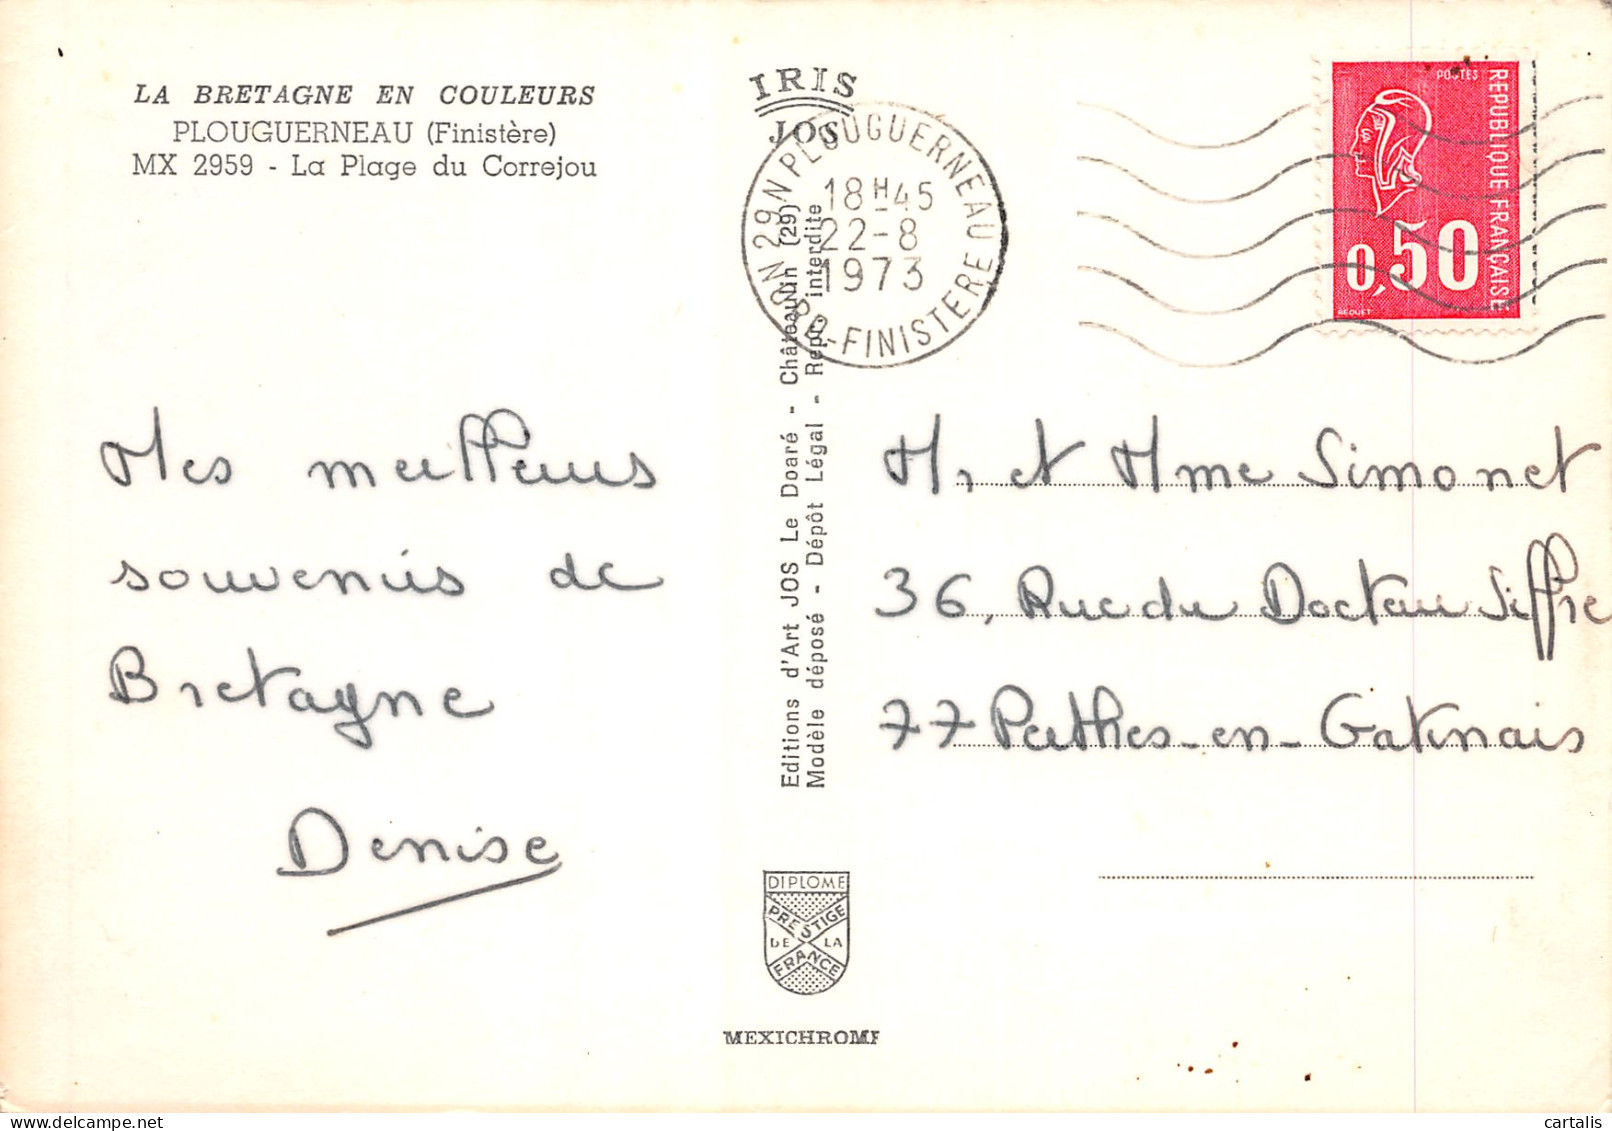 LA BRETAGNE EN COULEURS
PLOUGUERNEAU (Finistère)
MX 2959 - La Plage du Correjou
Mes meilleurs
souvenirs de
Bretagne
Denise
IRIS
JOS
Editions d'Art JOS Le Doaré - Châteaulin (29)
Modèle déposé - Dépôt Légal - Repr. interdite
29 N PLOUGUERNEAU
18H45
22-8
1973
NORD-FINISTERE
DIPLOME
PRESTIGE
DE LA
FRANCE
MEXICHROME
POSTES
REPUBLIQUE FRANÇAISE
0,50
BEQUET
Mr et Mme Simonet
36, Rue du Docteur Siffre
77 Perthes-en-Gatinais
cartalis